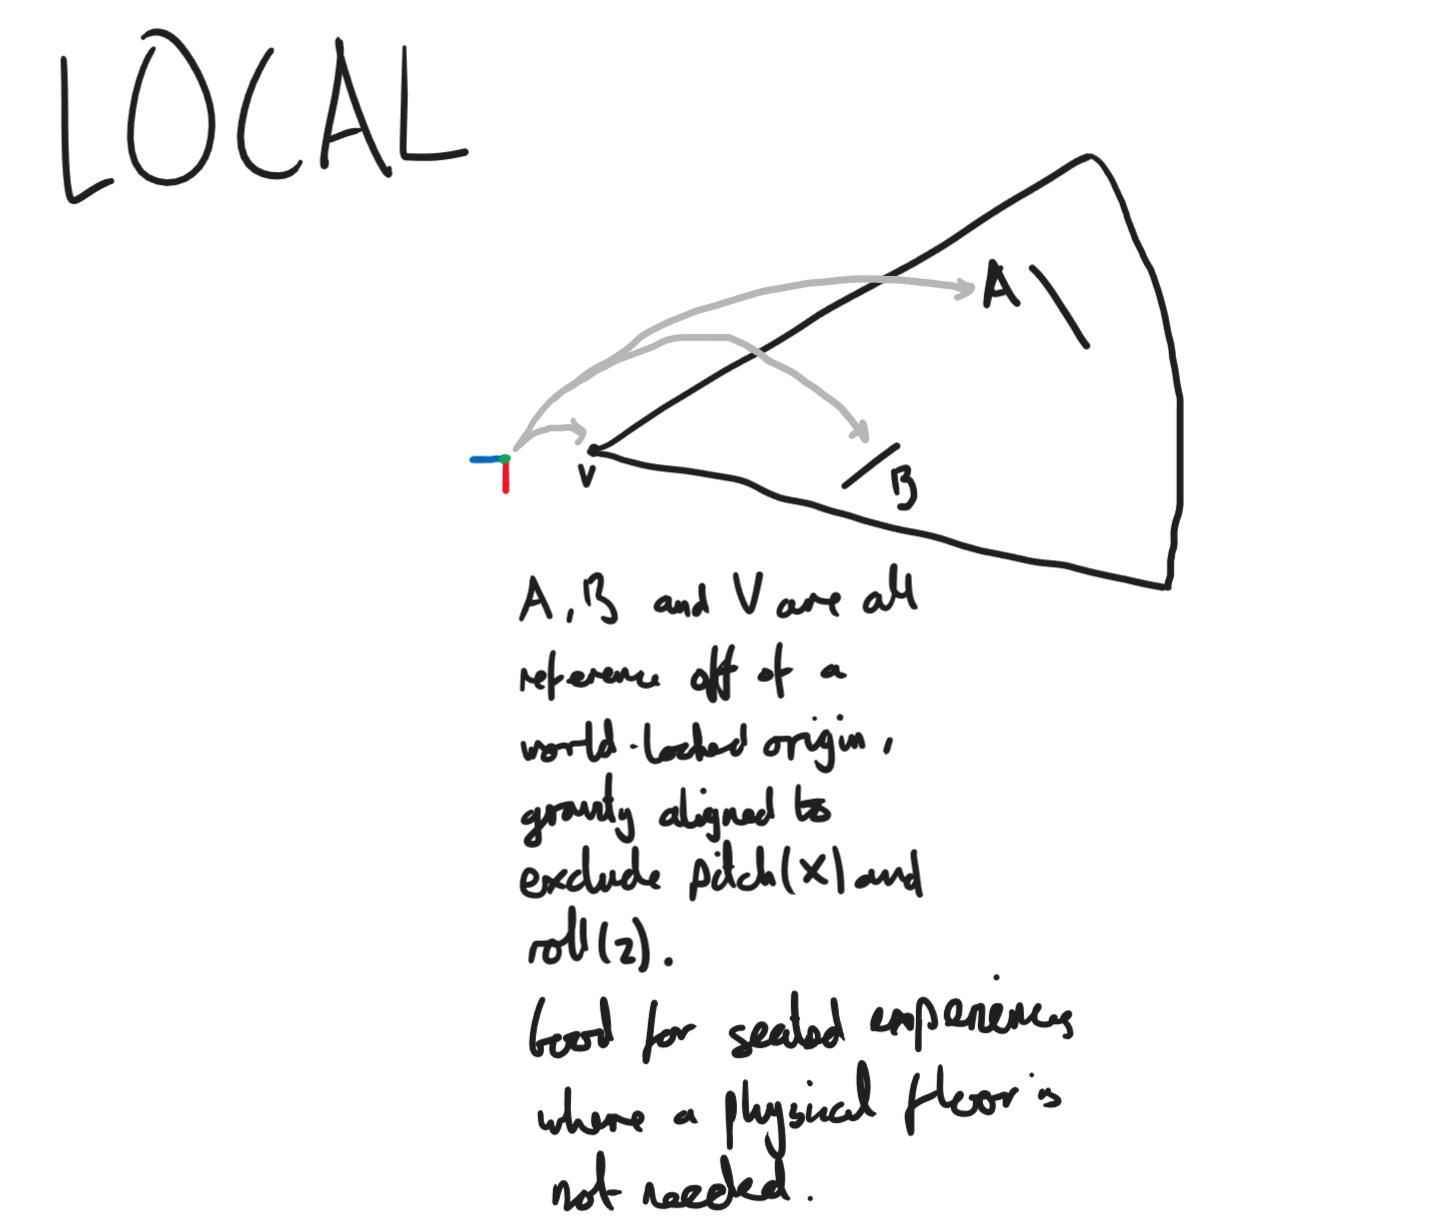 LOCAL
A
V
B
A, B and V are all
reference off of a
world-locked origin,
gravity aligned to
exclude pitch(X) and
roll(z).
Good for seated experiences
where a physical floor is
not needed.